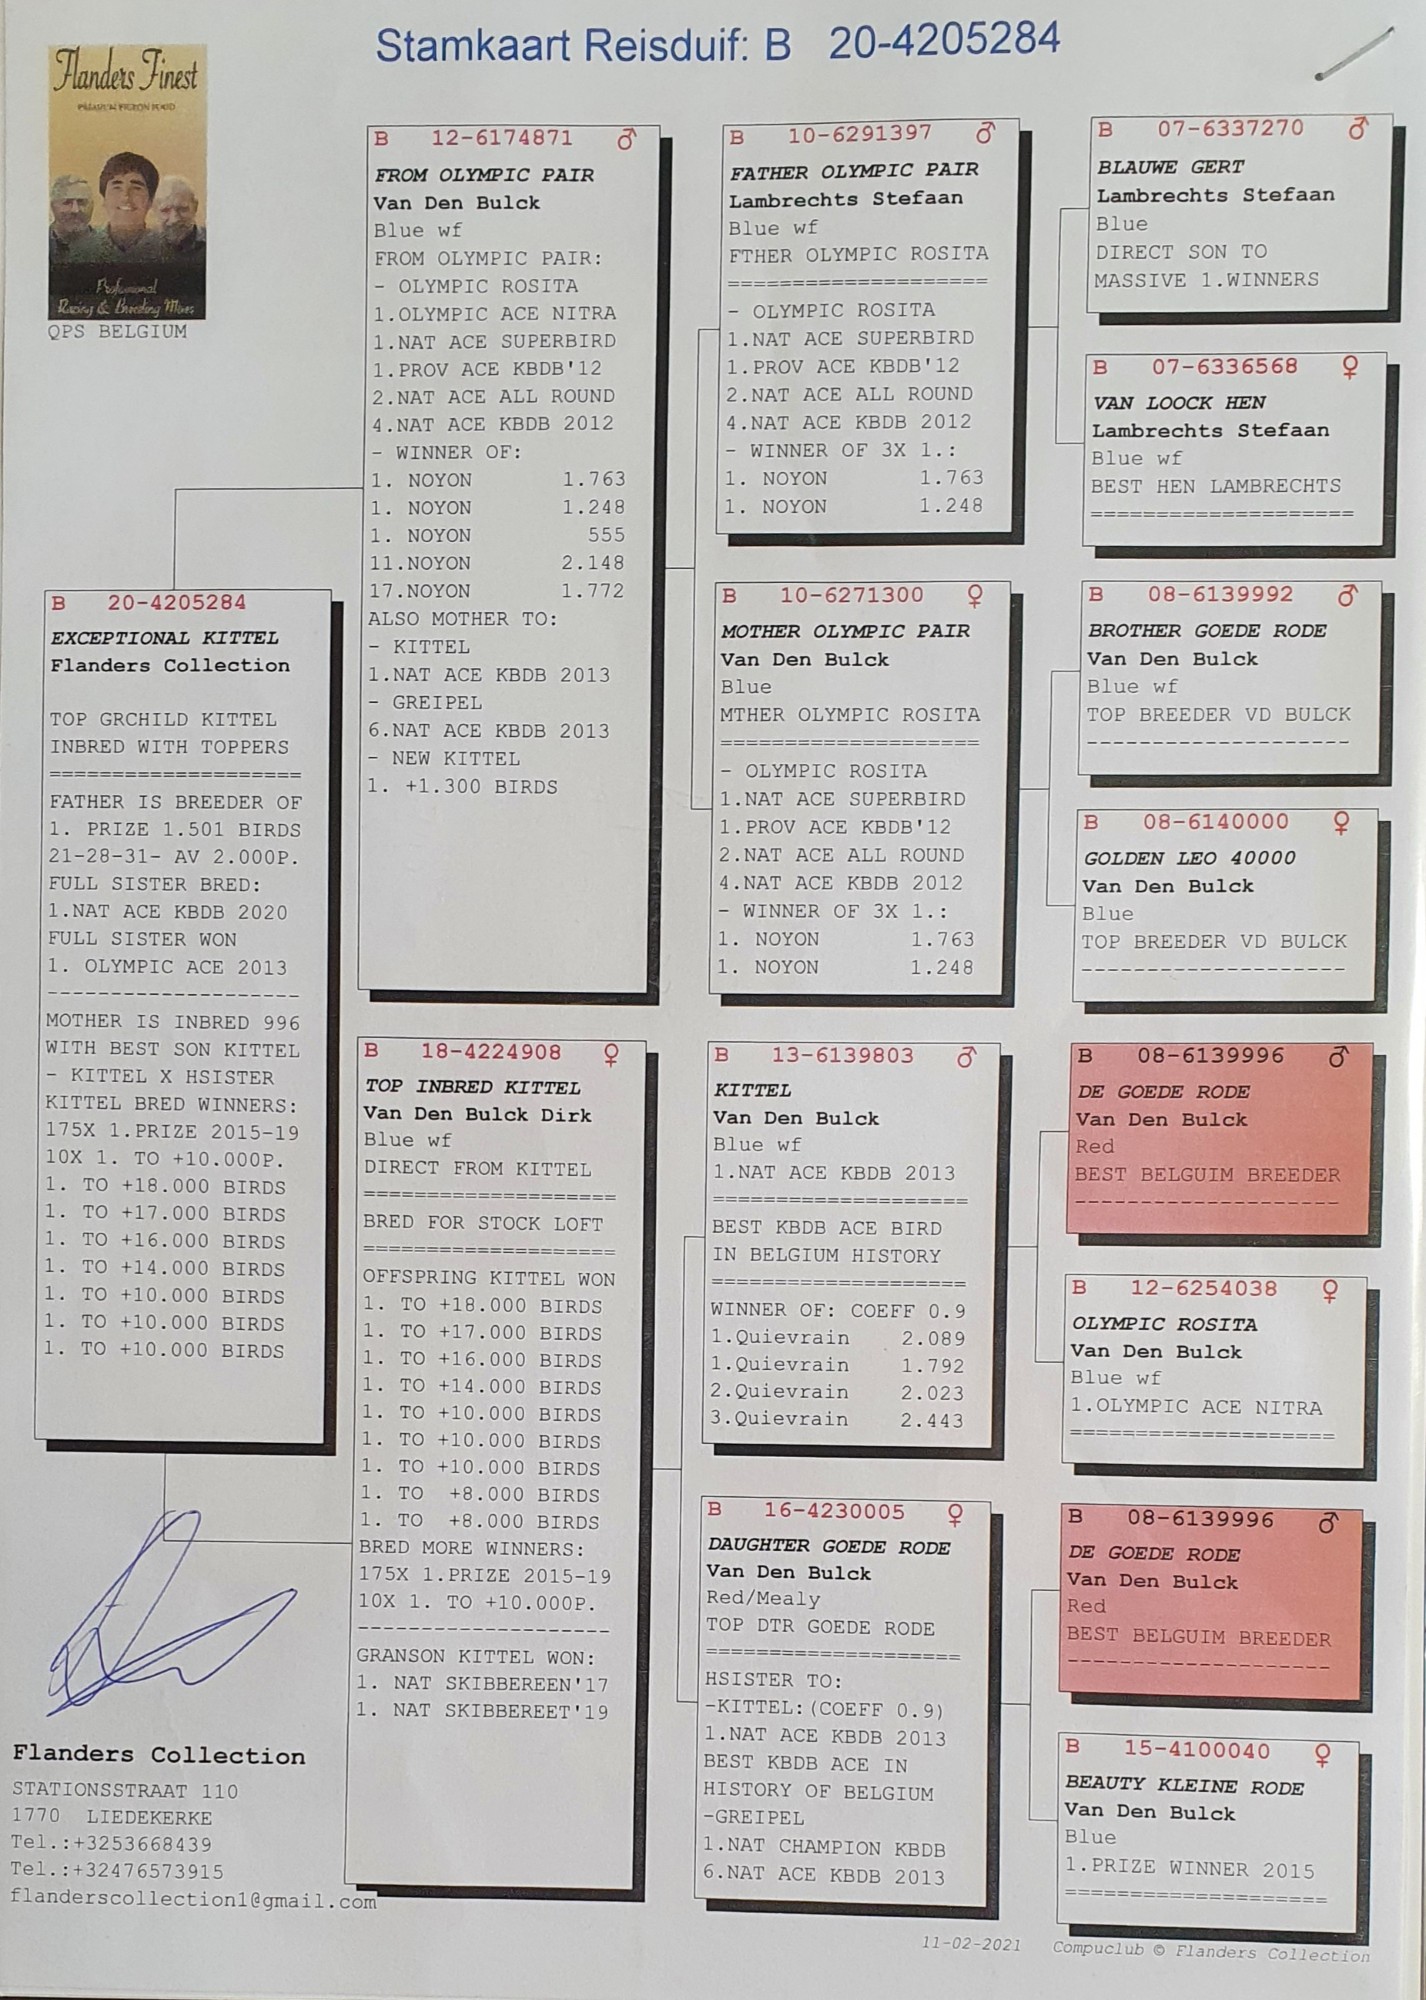 Stamkaart Reisduif: B 20-4205284
Flanders Finest
PREMIUM PIGEON FOOD
Professional
Racing & Breeding Mixes
QPS BELGIUM
B 20-4205284
EXCEPTIONAL KITTEL
Flanders Collection
TOP GRCHILD KITTEL
INBRED WITH TOPPERS
====================
FATHER IS BREEDER OF
1. PRIZE 1.501 BIRDS
21-28-31- AV 2.000P.
FULL SISTER BRED:
1.NAT ACE KBDB 2020
FULL SISTER WON
1. OLYMPIC ACE 2013
--------------------
MOTHER IS INBRED 996
WITH BEST SON KITTEL
- KITTEL X HSISTER
KITTEL BRED WINNERS:
175X 1.PRIZE 2015-19
10X 1. TO +10.000P.
1. TO +18.000 BIRDS
1. TO +17.000 BIRDS
1. TO +16.000 BIRDS
1. TO +14.000 BIRDS
1. TO +10.000 BIRDS
1. TO +10.000 BIRDS
1. TO +10.000 BIRDS
Flanders Collection
STATIONSSTRAAT 110
1770 LIEDEKERKE
Tel.:+3253668439
Tel.:+32476573915
flanderscollection1@gmail.com
B 12-6174871 ♂
FROM OLYMPIC PAIR
Van Den Bulck
Blue wf
FROM OLYMPIC PAIR:
- OLYMPIC ROSITA
1.OLYMPIC ACE NITRA
1.NAT ACE SUPERBIRD
1.PROV ACE KBDB'12
2.NAT ACE ALL ROUND
4.NAT ACE KBDB 2012
- WINNER OF:
1. NOYON 1.763
1. NOYON 1.248
1. NOYON 555
11.NOYON 2.148
17.NOYON 1.772
ALSO MOTHER TO:
- KITTEL
1.NAT ACE KBDB 2013
- GREIPEL
6.NAT ACE KBDB 2013
- NEW KITTEL
1. +1.300 BIRDS
B 18-4224908 ♀
TOP INBRED KITTEL
Van Den Bulck Dirk
Blue wf
DIRECT FROM KITTEL
====================
BRED FOR STOCK LOFT
====================
OFFSPRING KITTEL WON
1. TO +18.000 BIRDS
1. TO +17.000 BIRDS
1. TO +16.000 BIRDS
1. TO +14.000 BIRDS
1. TO +10.000 BIRDS
1. TO +10.000 BIRDS
1. TO +10.000 BIRDS
1. TO +8.000 BIRDS
1. TO +8.000 BIRDS
BRED MORE WINNERS:
175X 1.PRIZE 2015-19
10X 1. TO +10.000P.
--------------------
GRANSON KITTEL WON:
1. NAT SKIBBEREEN'17
1. NAT SKIBBEREET'19
B 10-6291397 ♂
FATHER OLYMPIC PAIR
Lambrechts Stefaan
Blue wf
FTHER OLYMPIC ROSITA
====================
- OLYMPIC ROSITA
1.NAT ACE SUPERBIRD
1.PROV ACE KBDB'12
2.NAT ACE ALL ROUND
4.NAT ACE KBDB 2012
- WINNER OF 3X 1.:
1. NOYON 1.763
1. NOYON 1.248
B 10-6271300 ♀
MOTHER OLYMPIC PAIR
Van Den Bulck
Blue
MTHER OLYMPIC ROSITA
====================
- OLYMPIC ROSITA
1.NAT ACE SUPERBIRD
1.PROV ACE KBDB'12
2.NAT ACE ALL ROUND
4.NAT ACE KBDB 2012
- WINNER OF 3X 1.:
1. NOYON 1.763
1. NOYON 1.248
B 13-6139803 ♂
KITTEL
Van Den Bulck
Blue wf
1.NAT ACE KBDB 2013
====================
BEST KBDB ACE BIRD
IN BELGIUM HISTORY
====================
WINNER OF: COEFF 0.9
1.Quievrain 2.089
1.Quievrain 1.792
2.Quievrain 2.023
3.Quievrain 2.443
B 16-4230005 ♀
DAUGHTER GOEDE RODE
Van Den Bulck
Red/Mealy
TOP DTR GOEDE RODE
====================
HSISTER TO:
-KITTEL:(COEFF 0.9)
1.NAT ACE KBDB 2013
BEST KBDB ACE IN
HISTORY OF BELGIUM
-GREIPEL
1.NAT CHAMPION KBDB
6.NAT ACE KBDB 2013
B 07-6337270 ♂
BLAUWE GERT
Lambrechts Stefaan
Blue
DIRECT SON TO
MASSIVE 1.WINNERS
B 07-6336568 ♀
VAN LOOCK HEN
Lambrechts Stefaan
Blue wf
BEST HEN LAMBRECHTS
=====================
B 08-6139992 ♂
BROTHER GOEDE RODE
Van Den Bulck
Blue wf
TOP BREEDER VD BULCK
--------------------
B 08-6140000 ♀
GOLDEN LEO 40000
Van Den Bulck
Blue
TOP BREEDER VD BULCK
--------------------
B 08-6139996 ♂
DE GOEDE RODE
Van Den Bulck
Red
BEST BELGUIM BREEDER
--------------------
B 12-6254038 ♀
OLYMPIC ROSITA
Van Den Bulck
Blue wf
1.OLYMPIC ACE NITRA
=====================
B 08-6139996 ♂
DE GOEDE RODE
Van Den Bulck
Red
BEST BELGUIM BREEDER
--------------------
B 15-4100040 ♀
BEAUTY KLEINE RODE
Van Den Bulck
Blue
1.PRIZE WINNER 2015
=====================
11-02-2021 Compuclub © Flanders Collection